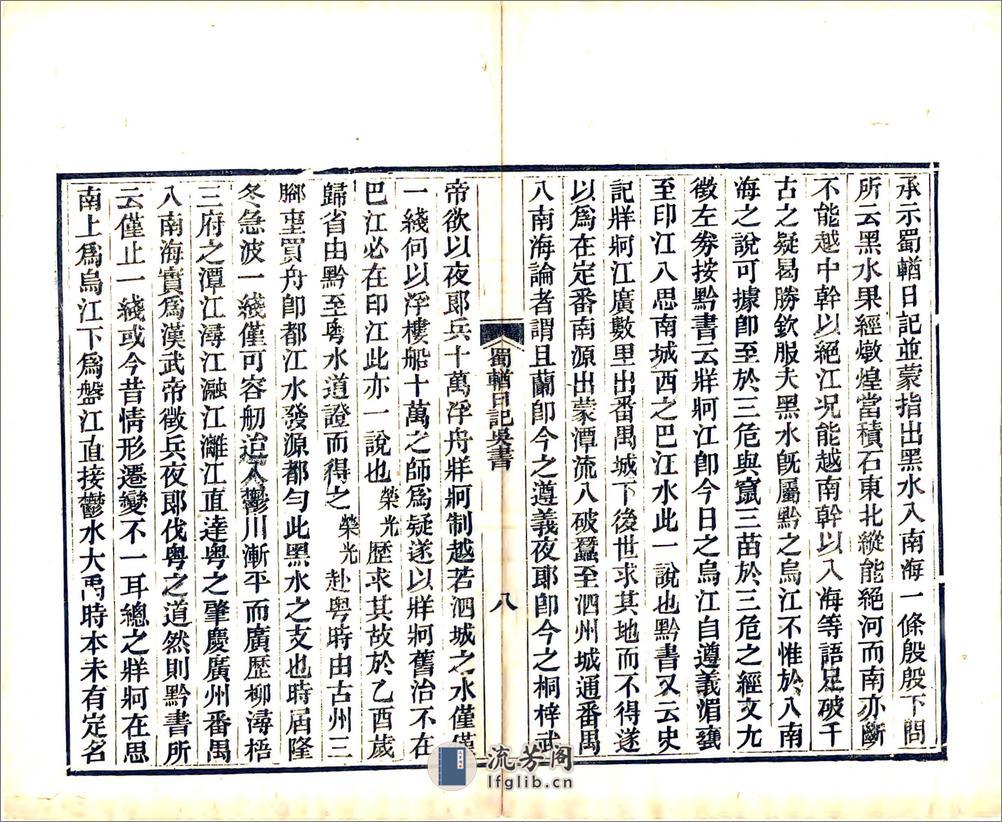 承示蜀輶日記並蒙指出黑水入南海一條殷殷下問
所云黑水果經燉煌當積石東北縱能絕河而南亦斷
不能越中幹以絕江况能越南幹以入海等語足破千
古之疑曷勝欽服夫黑水旣屬黔之烏江不惟於入南
海之說可據卽至於三危與竄三苗於三危之經文九
徵左劵按黔書云牂牁江卽今日之烏江自遵義湄甕
至印江入思南城西之巴江水此一說也黔書又云史
記牂牁江廣數里出番禺城下後世求其地而不得遂
以爲在定番南源出蒙潭流入破蠶至泗州城通番禺
入南海論者謂且蘭卽今之遵義夜郎卽今之桐梓武
蜀輶日記吳書
八
帝欲以夜郎兵十萬浮舟牂牁制越若泗城之水僅僅
一綫何以浮樓船十萬之師爲疑遂以牂牁舊治不在
巴江必在印江此亦一說也榮光歷求其故於乙酉歲
歸省由黔至粵水道證而得之榮光赴粵時由古州三
腳坉買舟卽都江水發源都勻此黑水之支也時届隆
冬急波一綫僅可容舠迨入鬱川漸平而廣歷柳潯梧
三府之潭江潯江瀜江灕江直達粵之肇慶廣州番禺
入南海實爲漢武帝徵兵夜郎伐粵之道然則黔書所
云僅止一綫或今昔情形遷變不一耳總之牂牁在思
南上爲烏江下爲盤江直接鬱水大禹時本未有定名
流芳阁
lfglib.cn